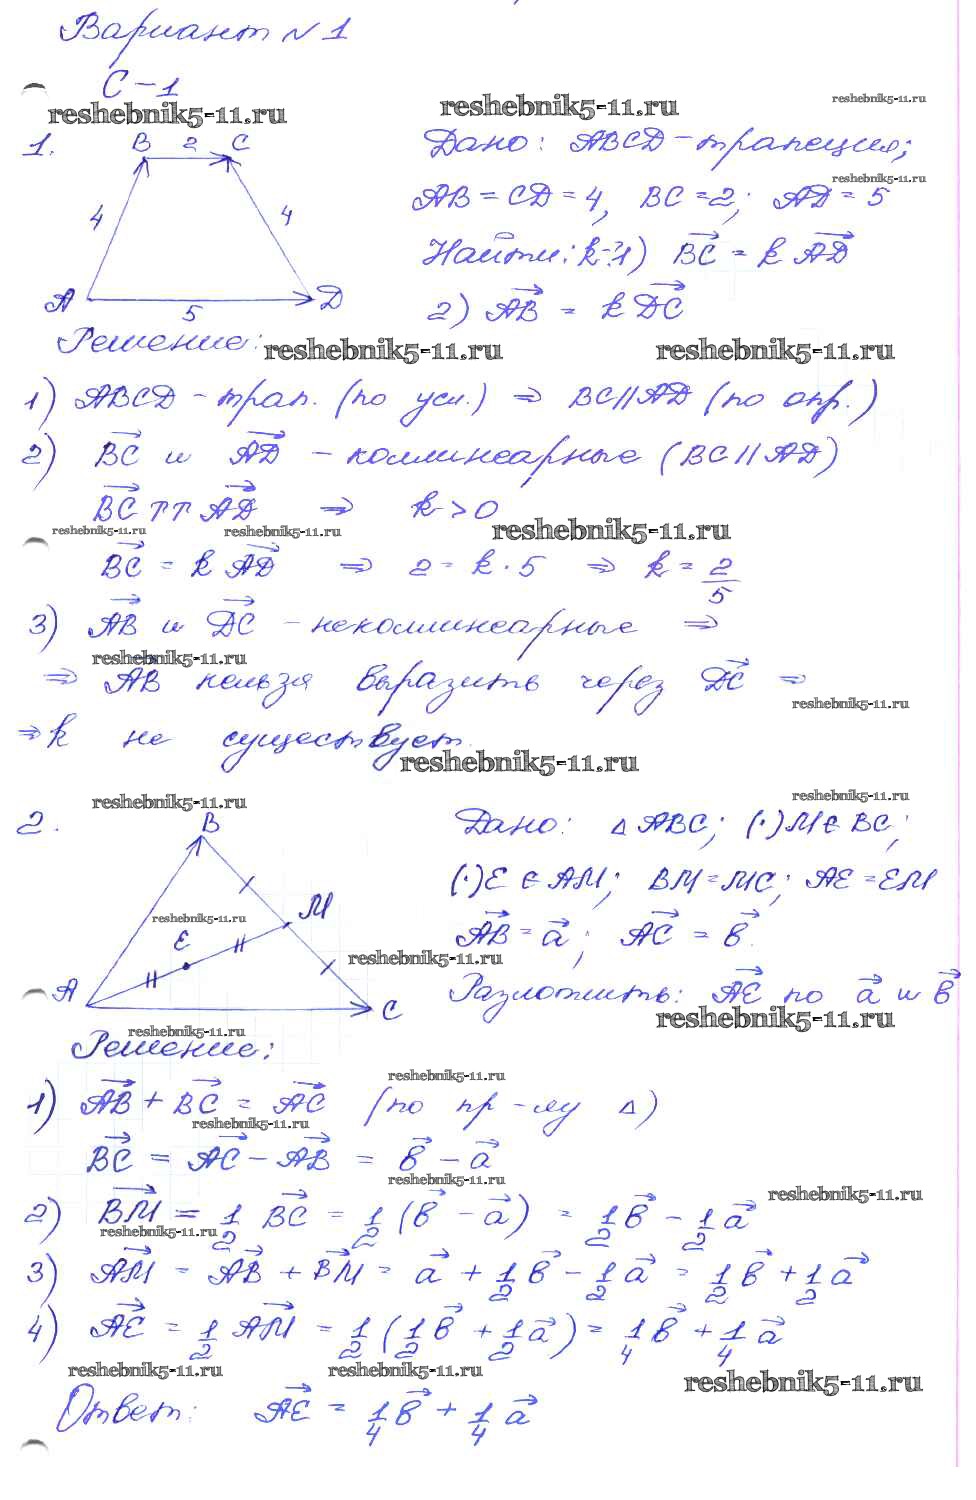 Вариант №1
С-1
reshebnik5-11.ru reshebnik5-11.ru reshebnik5-11.ru
1. B 2 C Дано: ABCD - трапеция;
reshebnik5-11.ru
4 4 AB = CD = 4, BC = 2; AD = 5
Найти: k-? 1) BC = k AD
A 5 D 2) AB = k DC
Решение: reshebnik5-11.ru reshebnik5-11.ru
1) ABCD - трап. (по усл.) ⇒ BC || AD (по опр.)
2) BC и AD - коллинеарные (BC || AD)
BC ↑↑ AD ⇒ k > 0
reshebnik5-11.ru reshebnik5-11.ru reshebnik5-11.ru
BC = k AD ⇒ 2 = k · 5 ⇒ k = 2/5
3) AB и DC - неколлинеарные ⇒
reshebnik5-11.ru
⇒ AB нельзя выразить через DC ⇒
reshebnik5-11.ru
⇒ k не существует.
reshebnik5-11.ru
reshebnik5-11.ru reshebnik5-11.ru
2. B Дано: △ ABC; (·) M ∈ BC;
(·) E ∈ AM; BM = MC; AE = EM
M
reshebnik5-11.ru
E AB = a; AC = b.
reshebnik5-11.ru
A C Разложить: AE по a и b
reshebnik5-11.ru
reshebnik5-11.ru
Решение:
reshebnik5-11.ru
1) AB + BC = AC (по пр-лу △)
reshebnik5-11.ru
BC = AC - AB = b - a
reshebnik5-11.ru reshebnik5-11.ru
2) BM = 1/2 BC = 1/2 (b - a) = 1/2 b - 1/2 a
reshebnik5-11.ru
3) AM = AB + BM = a + 1/2 b - 1/2 a = 1/2 b + 1/2 a
4) AE = 1/2 AM = 1/2 (1/2 b + 1/2 a) = 1/4 b + 1/4 a
reshebnik5-11.ru reshebnik5-11.ru reshebnik5-11.ru
Ответ: AE = 1/4 b + 1/4 a